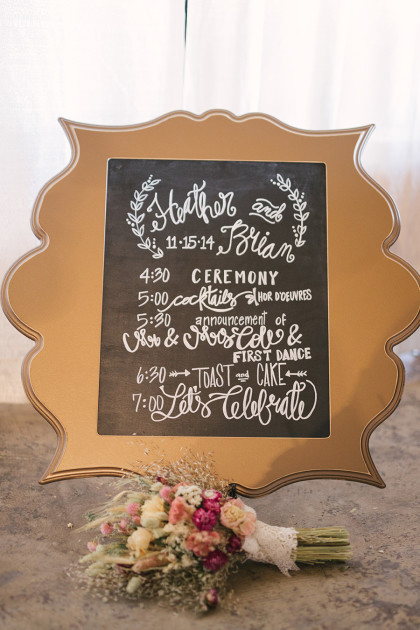 Heather and
11·15·14 Brian
4:30 CEREMONY
5:00 cocktails & HOR D'OEUVRES
5:30 announcement of
Mr & Mrs Cole &
FIRST DANCE
6:30 TOAST and CAKE
7:00 Let's Celebrate